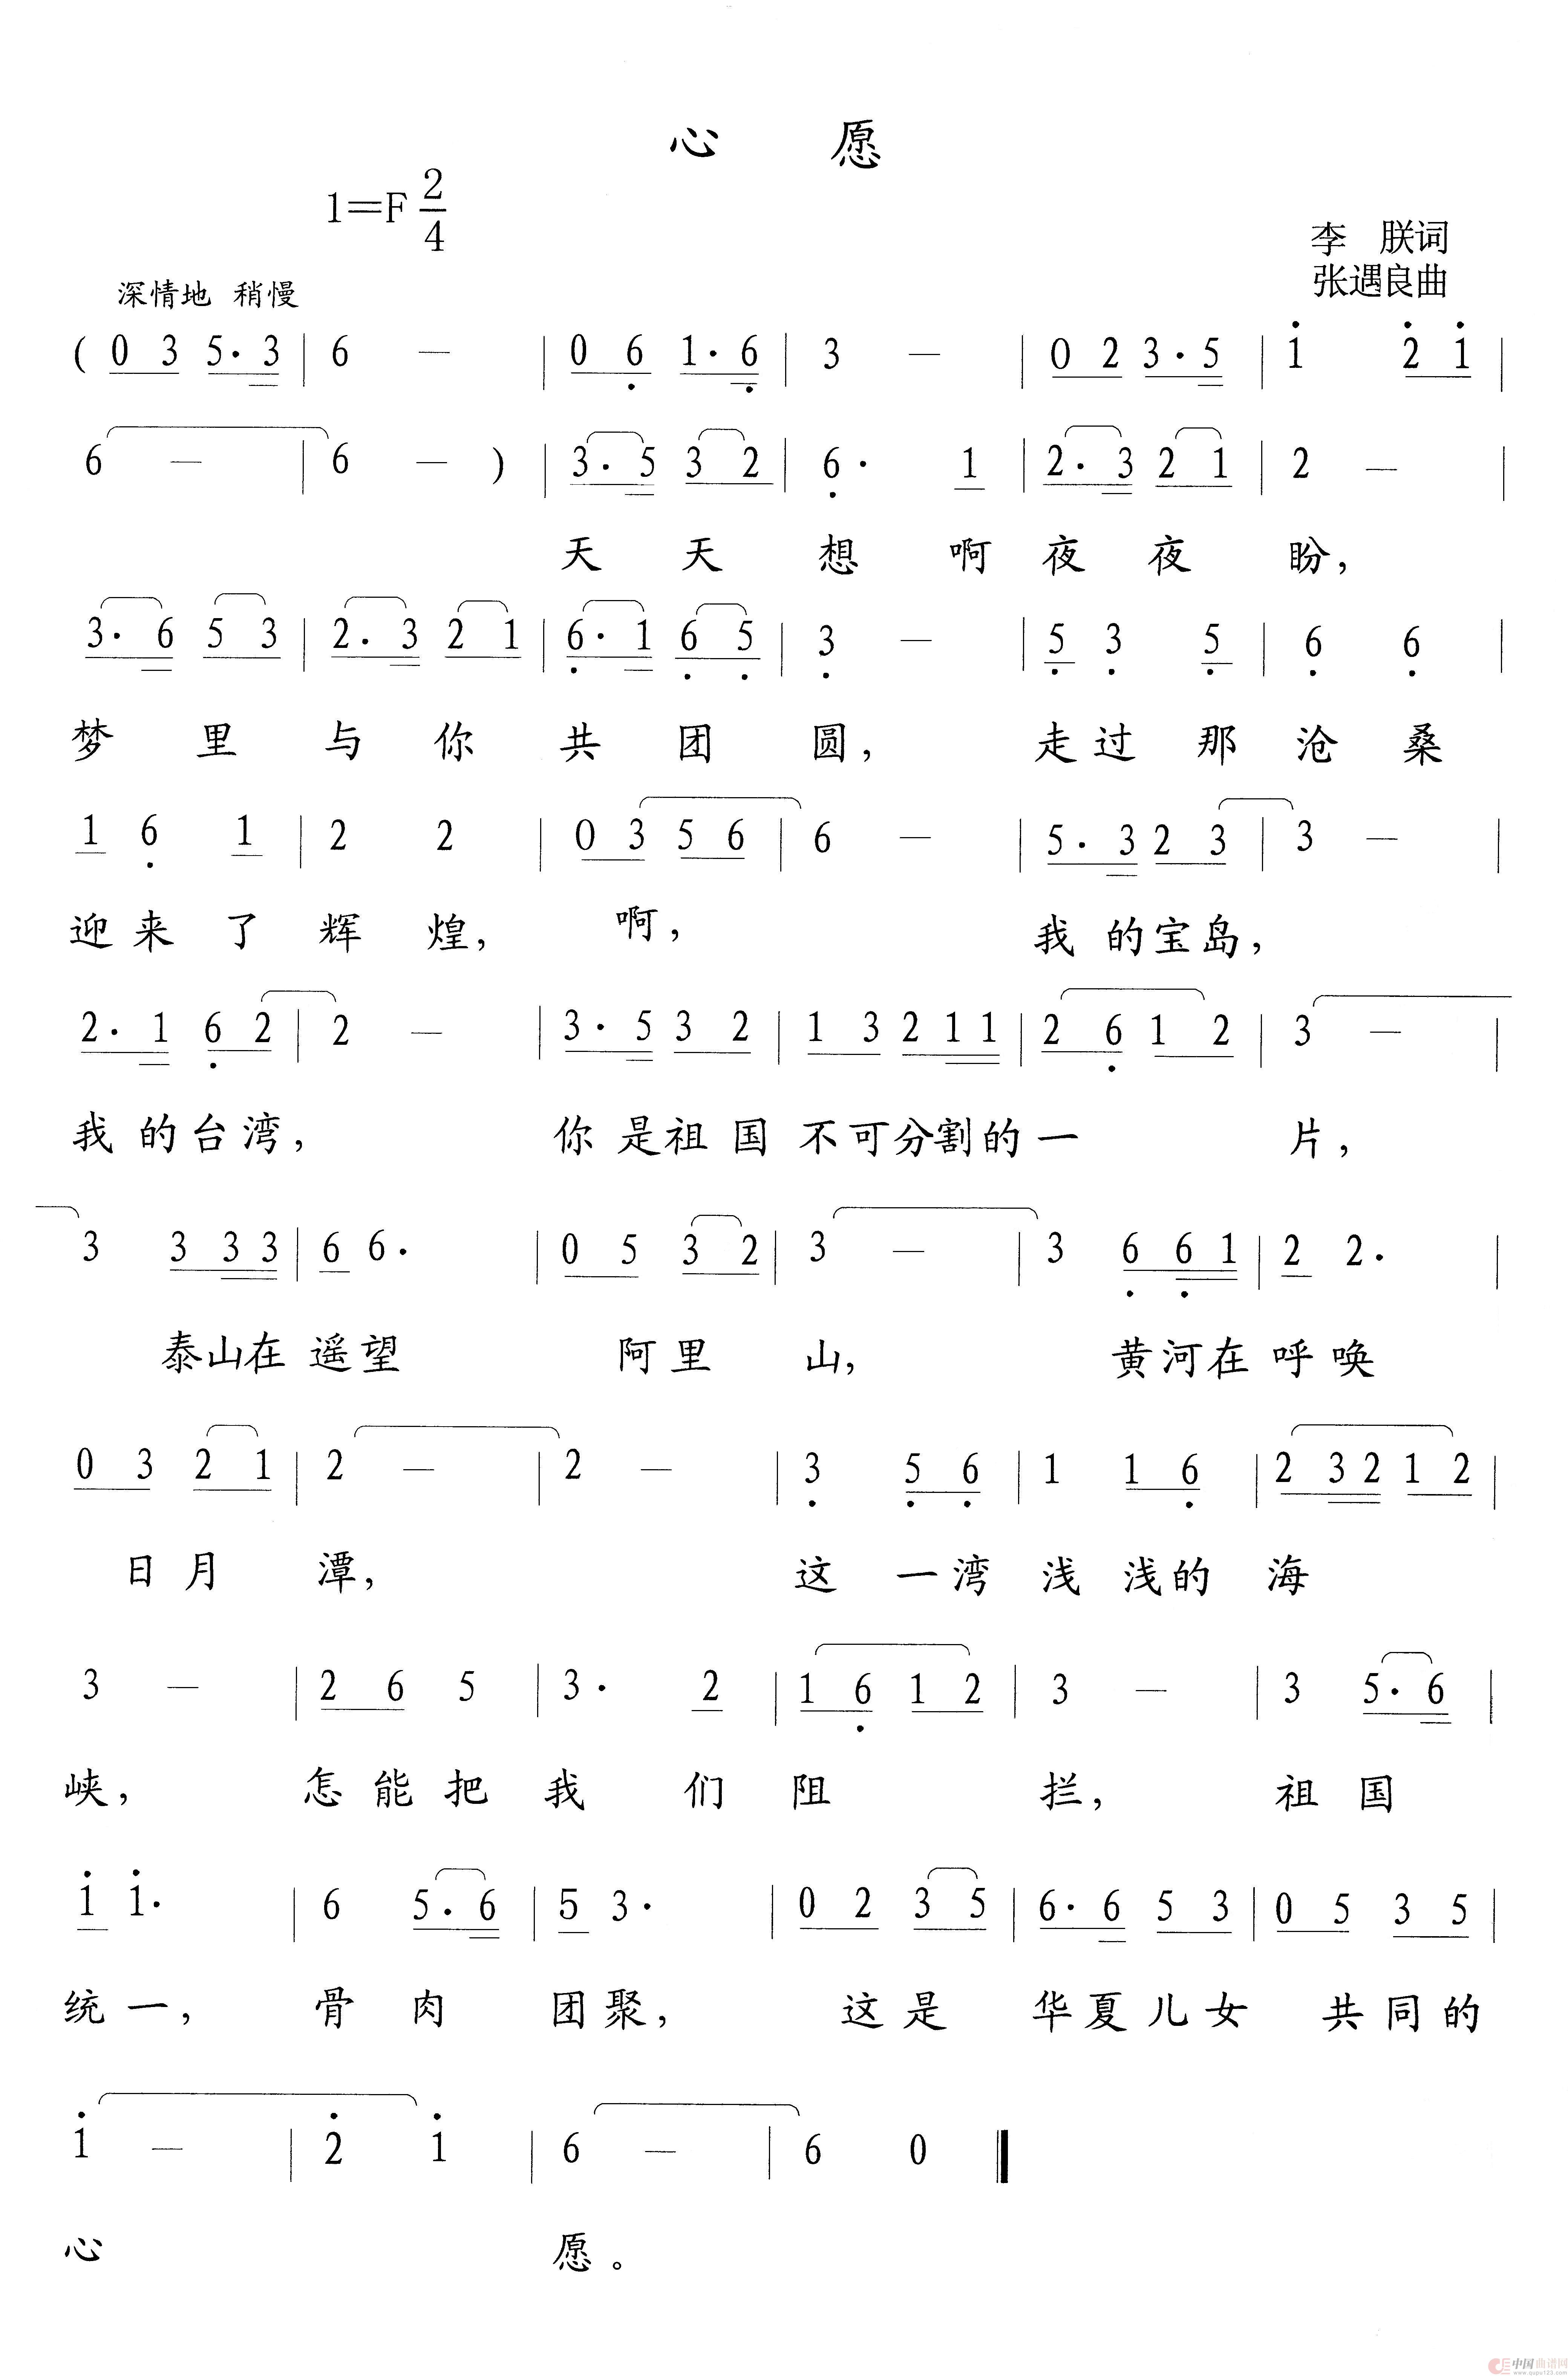 心 愿
1=F 2/4
李 朕词
张遇良曲
深情地 稍慢
( 0 3 5· 3 | 6 — | 0 6̣ 1· 6̣ | 3 — | 0 2 3· 5 | i 2̇ i |
6 — | 6 — ) | 3· 5 3 2 | 6̣· 1 | 2· 3 2 1 | 2 — |
天 天 想 啊 夜 夜 盼,
3· 6 5 3 | 2· 3 2 1 | 6̣· 1 6̣ 5̣ | 3̣ — | 5̣ 3̣ 5̣ | 6̣ 6̣ |
梦 里 与 你 共 团 圆, 走 过 那 沧 桑
1 6̣ 1 | 2 2 | 0 3 5 6 | 6 — | 5· 3 2 3 | 3 — |
迎 来 了 辉 煌, 啊, 我 的 宝 岛,
2· 1 6̣ 2 | 2 — | 3· 5 3 2 | 1 3 2 1 1 | 2 6̣ 1 2 | 3 — |
我 的 台 湾, 你 是 祖 国 不 可 分 割 的 一 片,
3 3 3 3 | 6 6· | 0 5 3 2 | 3 — | 3 6̣ 6̣ 1 | 2 2· |
泰 山 在 遥 望 阿 里 山, 黄 河 在 呼 唤
0 3 2 1 | 2 — | 2 — | 3̣ 5̣ 6̣ | 1 1 6̣ | 2 3 2 1 2 |
日 月 潭, 这 一 湾 浅 浅 的 海
3 — | 2 6 5 | 3· 2 | 1 6̣ 1 2 | 3 — | 3 5· 6 |
峡, 怎 能 把 我 们 阻 拦, 祖 国
i i· | 6 5· 6 | 5 3· | 0 2 3 5 | 6· 6 5 3 | 0 5 3 5 |
统 一, 骨 肉 团 聚, 这 是 华 夏 儿 女 共 同 的
i — | 2̇ i | 6 — | 6 0 ‖
心 愿。
中国曲谱网
www.qupu123.com